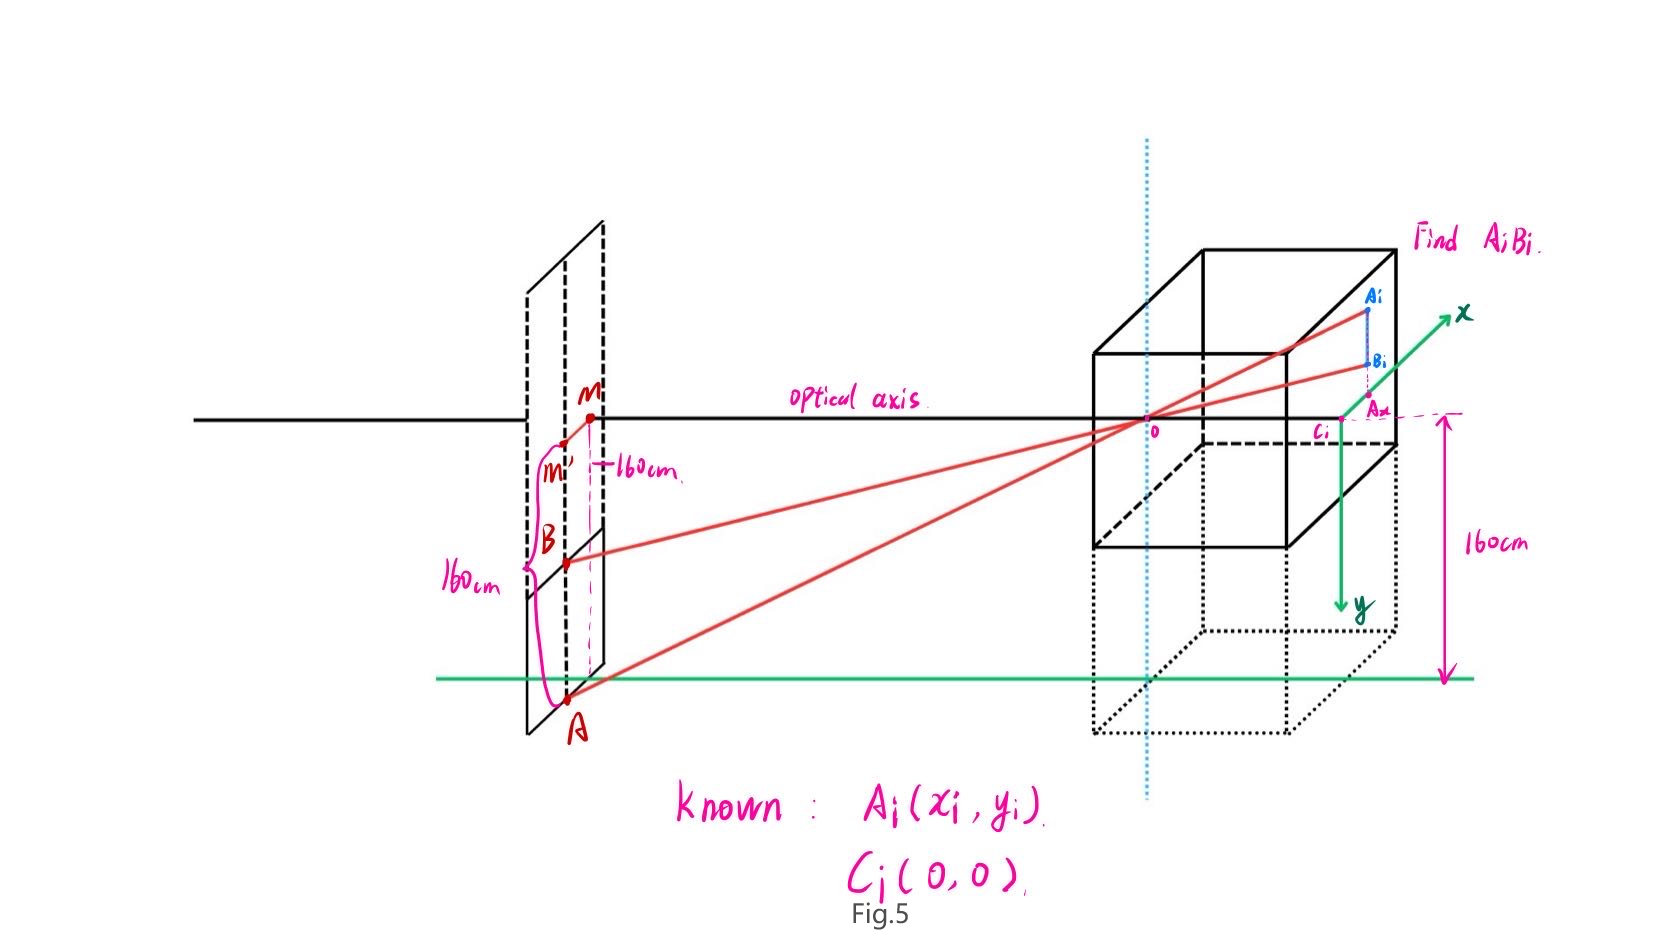 Find AiBi.
Ai
x
M
optical axis.
Bi
Ax
O
Ci
M'
160cm.
B
160cm
160cm
y
A
known : Ai(xi, yi).
Ci(0,0).
Fig.5